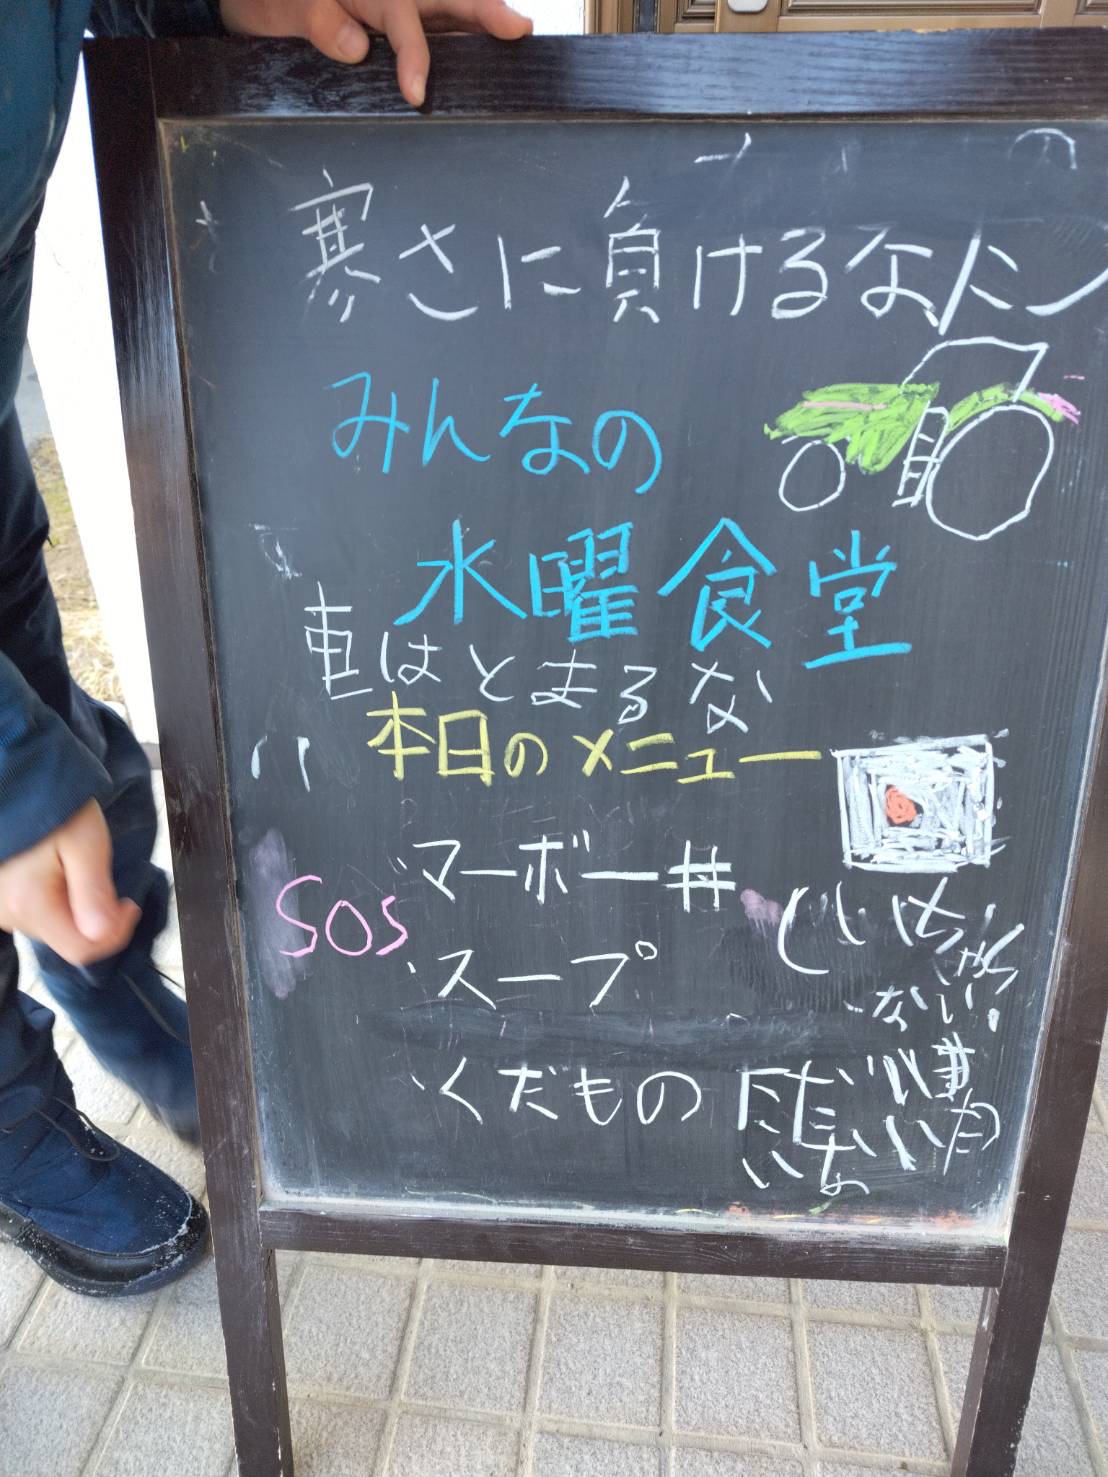 寒さに負けるな、トン
みんなの
水曜食堂
車はとまるな
本日のメニュー
・マーボー丼
SOS
・スープ
・くだもの
じいちゃん
ない!